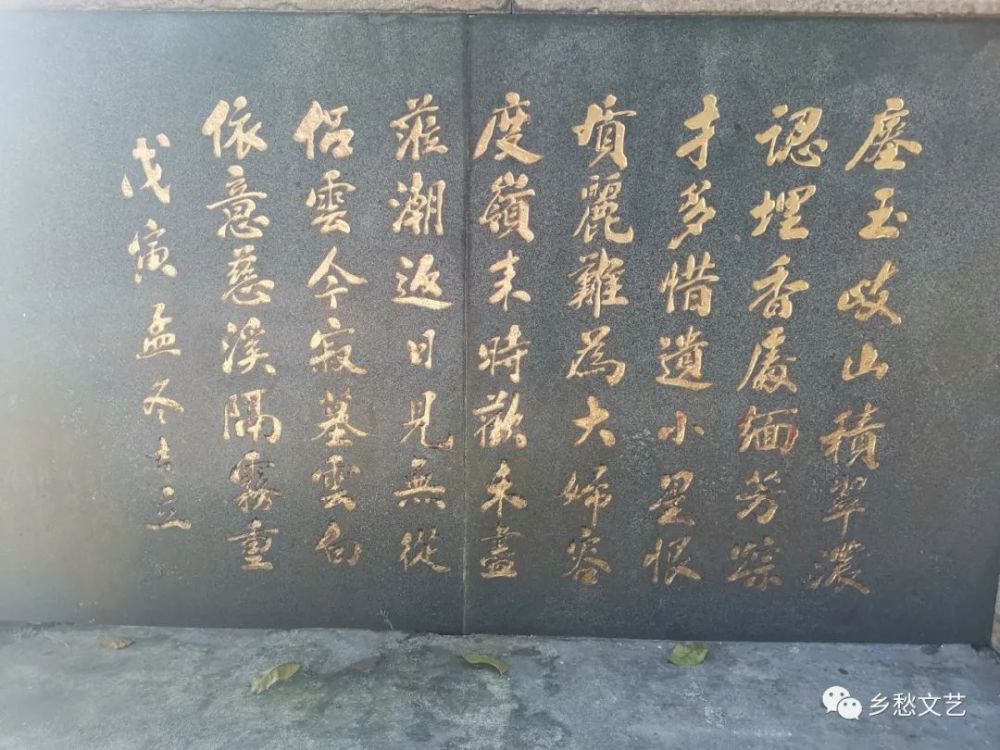 瘞玉岐山積翠濃
認埋香處緬芳踪
才多惜遺小星恨
質麗難為大婦容
度嶺来時歡未盡
蒞潮返日見無從
侣雲今寂墓雲
依意慈溪隔霧重
戊寅孟冬吉立
乡愁文艺